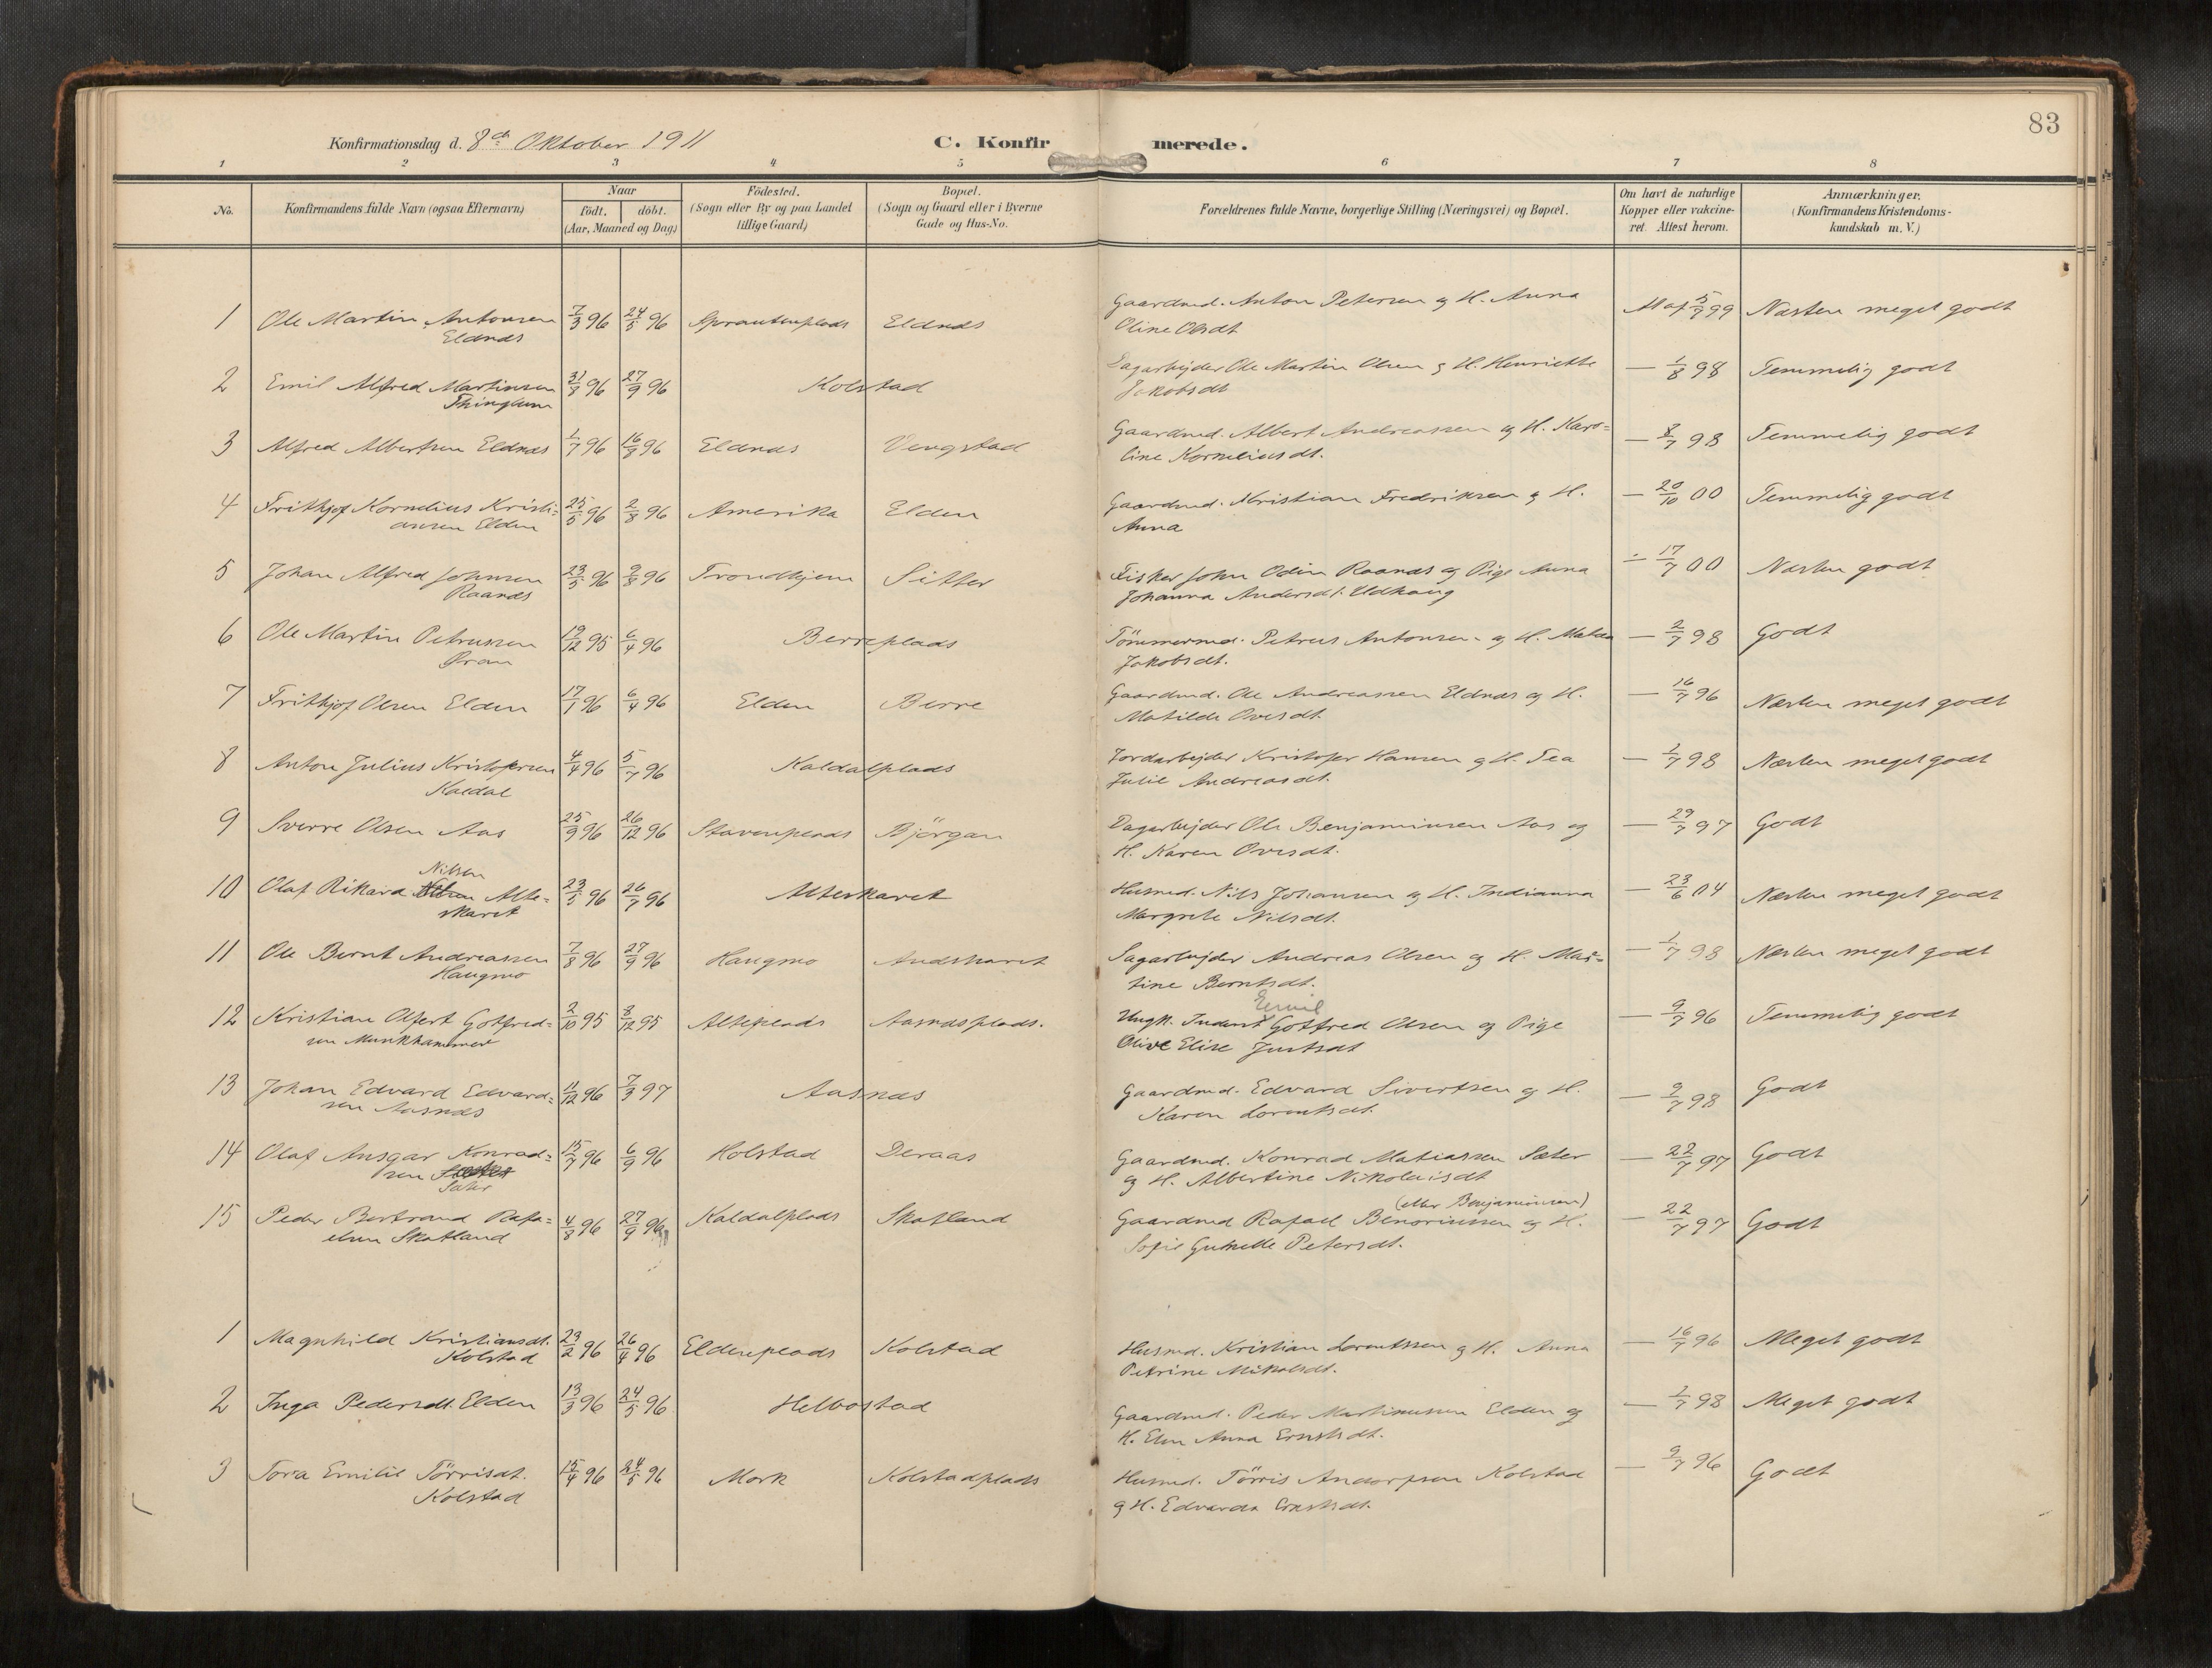 83
Konfirmationsdag d. 8de Oktober 1911 C. Konfirmerede.
1 2 3 4 5 6 7 8
No. Konfirmandens fulde Navn (ogsaa Efternavn) Naar födt, döbt. (Aar, Maaned og Dag) Födested. (Sogn eller By og paa Landet tillige Gaard) Bopæl. (Sogn og Gaard eller i Byerne Gade og Hus-No. Forældrenes fulde Navne, borgerlige Stilling (Næringsvei) og Bopæl. Om havt de naturlige Kopper eller vakcineret. Attest herom. Anmærkninger. (Konfirmandens Kristendomskundskab m. V.)
1 Ole Martin Antonsen 7/3 96 24/5 96 Eldnæs Gaardmd. Anton Petersen og H. Anna 5/7 99 Næsten meget godt
Eldnæs Oline Olsdt
2 Emil Alfred Martinsen 31/8 96 27/9 96 Kolstad Sagarbejder Ole Martin Olsen og H. Henriette — 1/8 98 Temmelig godt
Jakobsdt
3 Alfred Albertsen Eldnæs 1/7 96 16/8 96 Eldnæs Vengstad Gaardmd. Albert Andreassen og H. Karo= — 8/7 98 Temmelig godt
line Korneliusdt.
4 Frithjof Kornelius Kristi= 25/5 96 2/8 96 Amerika Elden Gaardmd. Kristian Fredriksen og H. — 20/10 00 Temmelig godt
ansen Elden Anna
5 Johan Alfred Johnsen 23/5 96 9/8 96 Trondhjem Sitter Fisker John Odin Raanæs og Pige Anna — 17/7 00 Næsten godt
Raanæs Johanna Andersdt. Udhaug
6 Ole Martin Petrussen 19/12 95 6/4 96 Berreplads Tömmermd. Petrus Antonsen og H. — 2/7 98 Godt
Øran Jakobsdt.
7 Frithjof Olsen Elden 17/1 96 6/4 96 Elden Berre Gaardmd. Ole Andreassen Eldnæs og H. — 16/7 96 Næsten meget godt
Matilde Ovesdt.
8 Anton Julius Kristofersen 4/4 96 5/7 96 Kaldalplads Jordarbejder Kristofer Hansen og H. Tea — 1/7 98 Næsten meget godt
Kaldal Julie Andreasdt.
9 Sverre Olsen Aas 25/9 96 26/12 96 Stavenplads Björgan Dagarbejder Ole Benjaminsen Aas og — 29/7 97 Godt
H. Karen Ovesdt.
Nilsen
10 Olaf Rikard Alte= 23/5 96 26/7 96 Alteskaret Husmd. Nils Johansen og H. Indianna — 23/6 04 Næsten meget godt
skaret Margrete Nilsdt.
11 Ole Bernt Andreassen 7/8 96 27/9 96 Haugmo Andskaret Sagarbejder Andreas Olsen og H. Mar= — 1/7 98 Næsten meget godt
Haugmo tine Berntsdt.
Emil
12 Kristian Olfert Gotfred= 2/10 95 8/12 95 Alteplads Aasnæsplads. Ungk. Gotfred Olsen og Pige — 9/7 96 Temmelig godt
sen Munkhammer Olive Elise Justsdt
13 Johan Edvard Edvard= 11/12 96 7/3 97 Aasnæs Gaardmd. Edvard Sivertsen og H. — 9/7 98 Godt
sen Aasnæs Karen Lorentsdt.
14 Olaf Ansgar Konrad= 15/7 96 6/9 96 Holstad Deraas Gaardmd. Konrad Matiassen Sæter — 22/7 97 Godt
sen og H. Albertine Nikolaisdt
Sæter
(eller Benjaminsen)
15 Peder Bertrand Rafa= 4/8 96 27/9 96 Kaldalplads Skatland Gaardmd Rafael og H. — 22/7 97 Godt
elsen Skatland Sofie Gunelle Petersdt.
1 Magnhild Kristiansdt. 23/2 96 26/4 96 Eldenplads Kolstad Husmd. Kristian Lorentssen og H. Anna — 16/7 96 Meget godt
Kolstad Petrine Mikalsdt.
2 Inga Pedersdt. Elden 13/3 96 24/5 96 Helbostad Gaardmd. Peder Martinussen Elden og — 1/7 98 Meget godt
H. Elen Anna Ernstsdt.
3 Tora Emilie Törrisdt. 15/4 96 24/5 96 Mork Kolstadplads Husmd. Törris Kolstad — 9/7 96 Godt
Kolstad og H. Edvarda Ernstsdt.